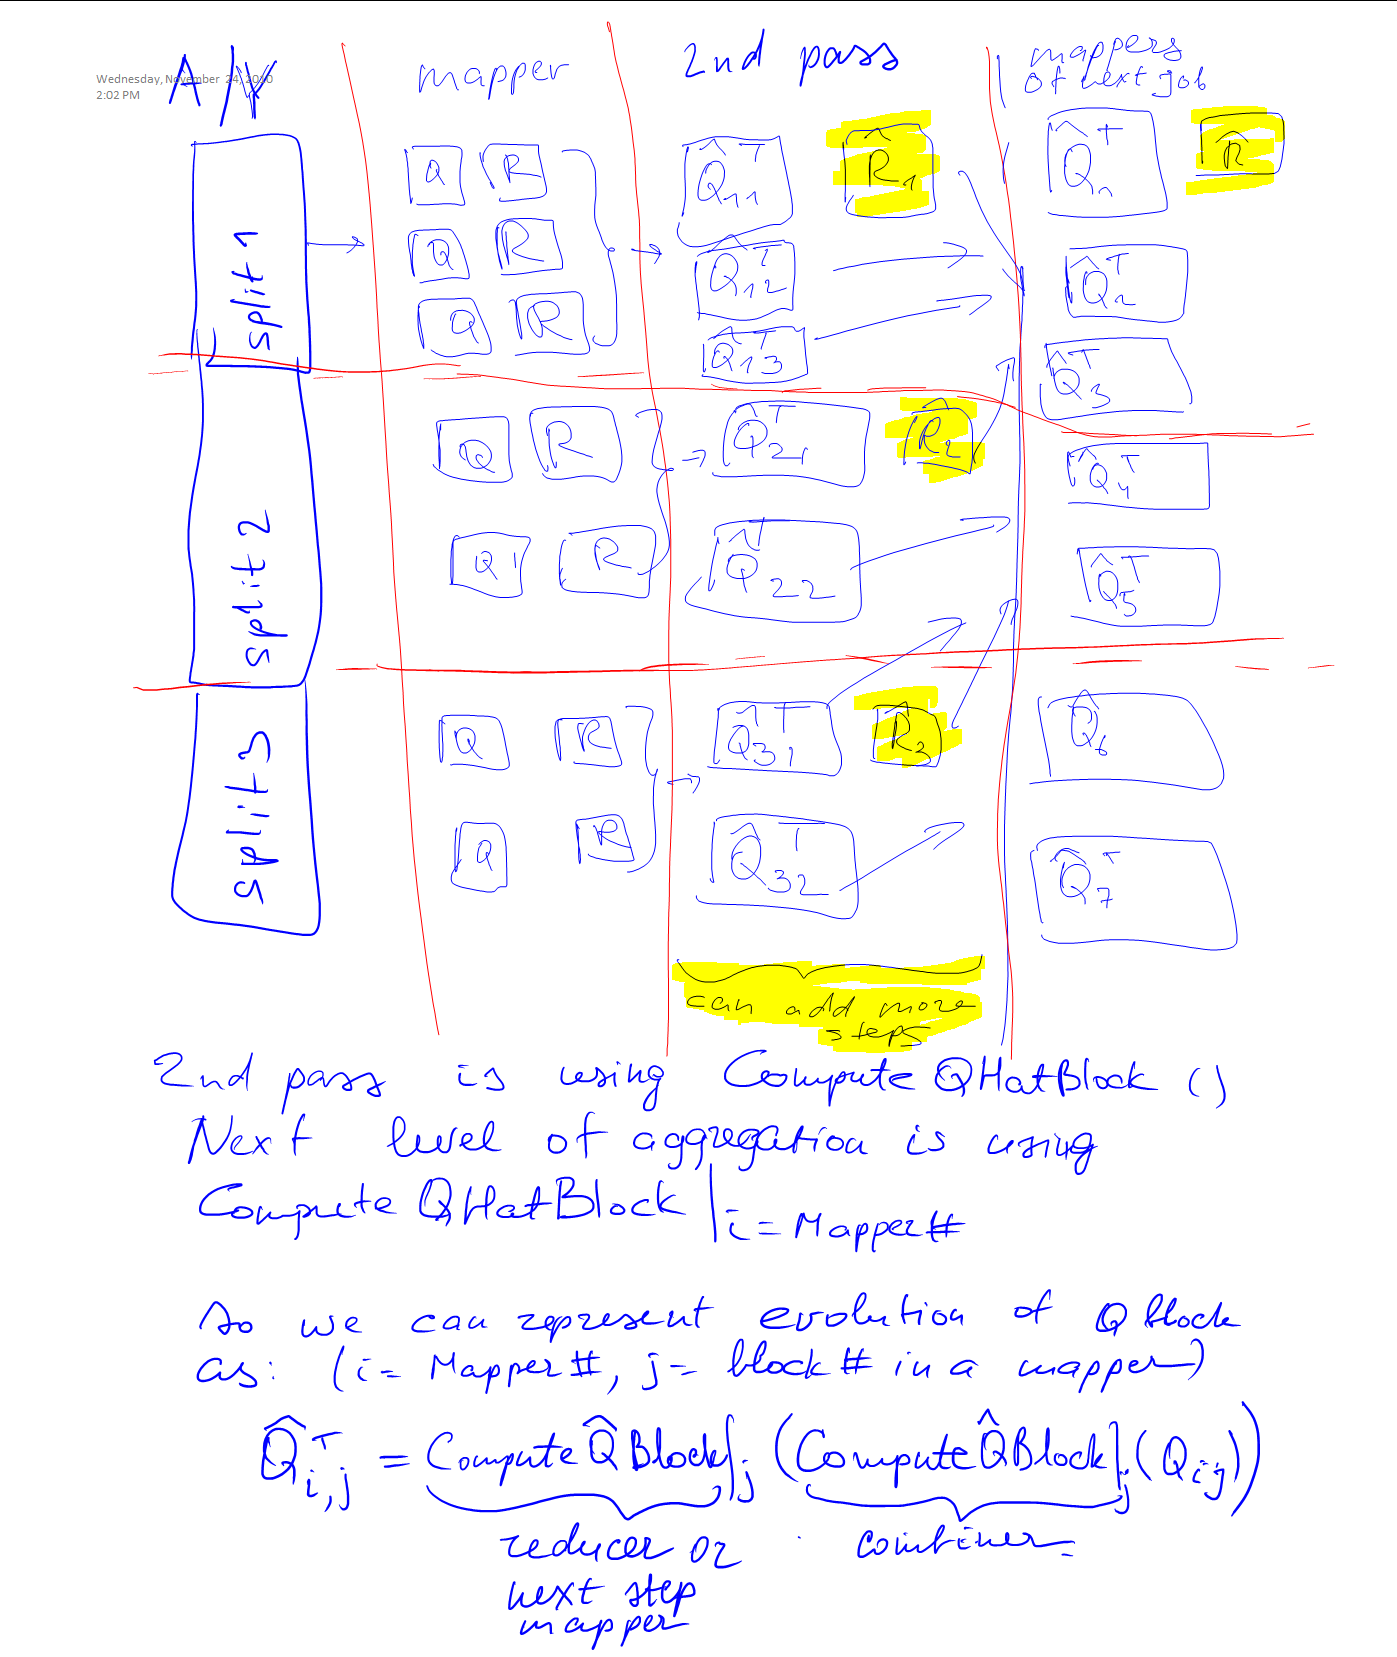 Wednesday, November 24, 2010
2:02 PM
A/Y
mapper
2nd pass
mappers
of next job
split 1
Q R
Q R
Q R
Q̂ᵀ₁₁ R̂₁
Q̂ᵀ₁₂
Q̂ᵀ₁₃
Q̂ᵀ₁ R̂
Q̂ᵀ₂
Q̂ᵀ₃
split 2
Q R
Q R
Q̂ᵀ₂₁ R̂₂
Q̂ᵀ₂₂
Q̂ᵀ₄
Q̂ᵀ₅
split 3
Q R
Q R
Q̂ᵀ₃₁ R̂₃
Q̂ᵀ₃₂
Q̂₆
Q̂ᵀ₇
can add more
steps
2nd pass is using Compute QHatBlock ()
Next level of aggregation is using
Compute QHatBlock |i = Mapper#
So we can represent evolution of Q block
as: (i = Mapper #, j = block # in a mapper)
Q̂ᵀi,j = Compute Q̂ Block|j (Compute Q̂ Block|j (Qij))
reducer or
next step
mapper
combiner